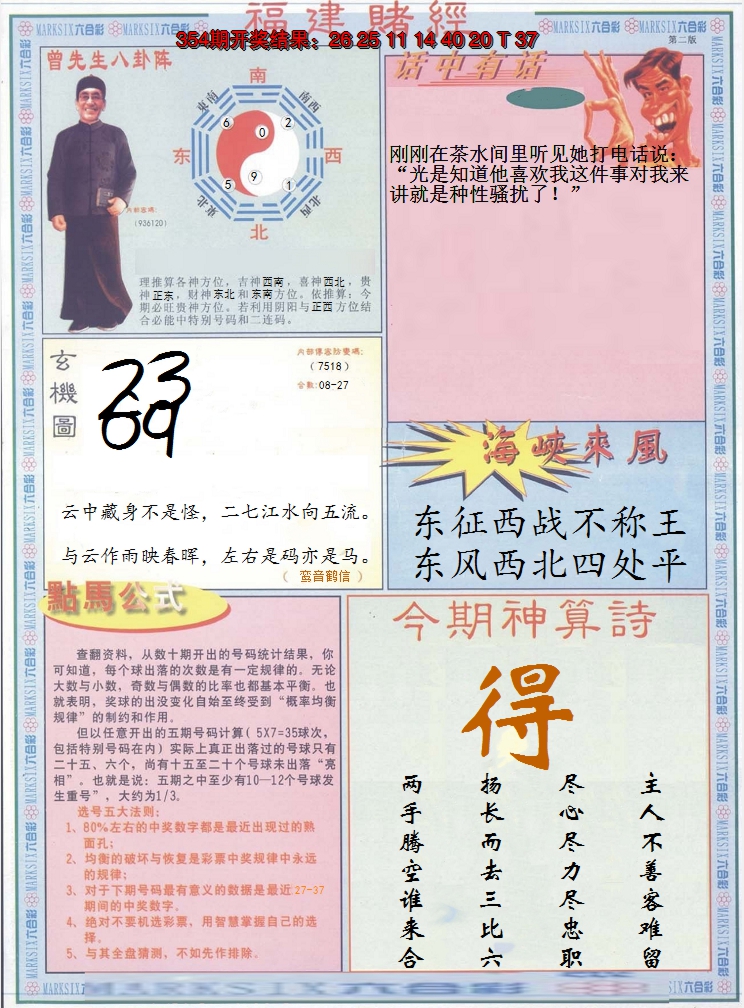 福建賭經
354期开奖结果：26 25 11 14 40 20 T 37
第二版
MARKSIX六合彩
曾先生八卦阵
南
东南
西南
东
西
东北
西北
北
6 0 2
5 9 1
内部密碼：
（936120）
理推算各神方位，吉神西南，喜神西北，贵
神正东，财神东北和东南方位。依推算：今
期必旺贵神方位。若利用阴阳与正西方位结
合必能中特别号码和二连码。
话中有话
刚刚在茶水间里听见她打电话说：
“光是知道他喜欢我这件事对我来
讲就是种性骚扰了！”
玄機圖
23
69
内部傳密抄變碼：
（7518）
合数：08-27
云中藏身不是怪，二七江水向五流。
与云作雨映春晖，左右是码亦是马。
（ 鸾音鹤信 ）
海峽來風
东征西战不称王
东风西北四处平
點馬公式
查翻资料，从数十期开出的号码统计结果，你
可知道，每个球出落的次数是有一定规律的。无论
大数与小数，奇数与偶数的比率也都基本平衡。也
就表明，奖球的出没变化自始至终受到“概率均衡
规律”的制约和作用。
但以任意开出的五期号码计算（5X7=35球次，
包括特别号码在内）实际上真正出落过的号球只有
二十五、六个，尚有十五至二十个号球未出落“亮
相”。也就是说：五期之中至少有10—12个号球发
生重号”，大约为1/3。
选号五大法则：
1、80%左右的中奖数字都是最近出现过的熟
面孔；
2、均衡的破坏与恢复是彩票中奖规律中永远
的规律；
3、对于下期号码最有意义的数据是最近27-37
期间的中奖数字。
4、绝对不要机选彩票，用智慧掌握自己的选
择。
5、与其全盘猜测，不如先作排除。
今期神算詩
得
主人不善客难留
尽心尽力尽忠职
扬长而去三比六
两手腾空谁来合